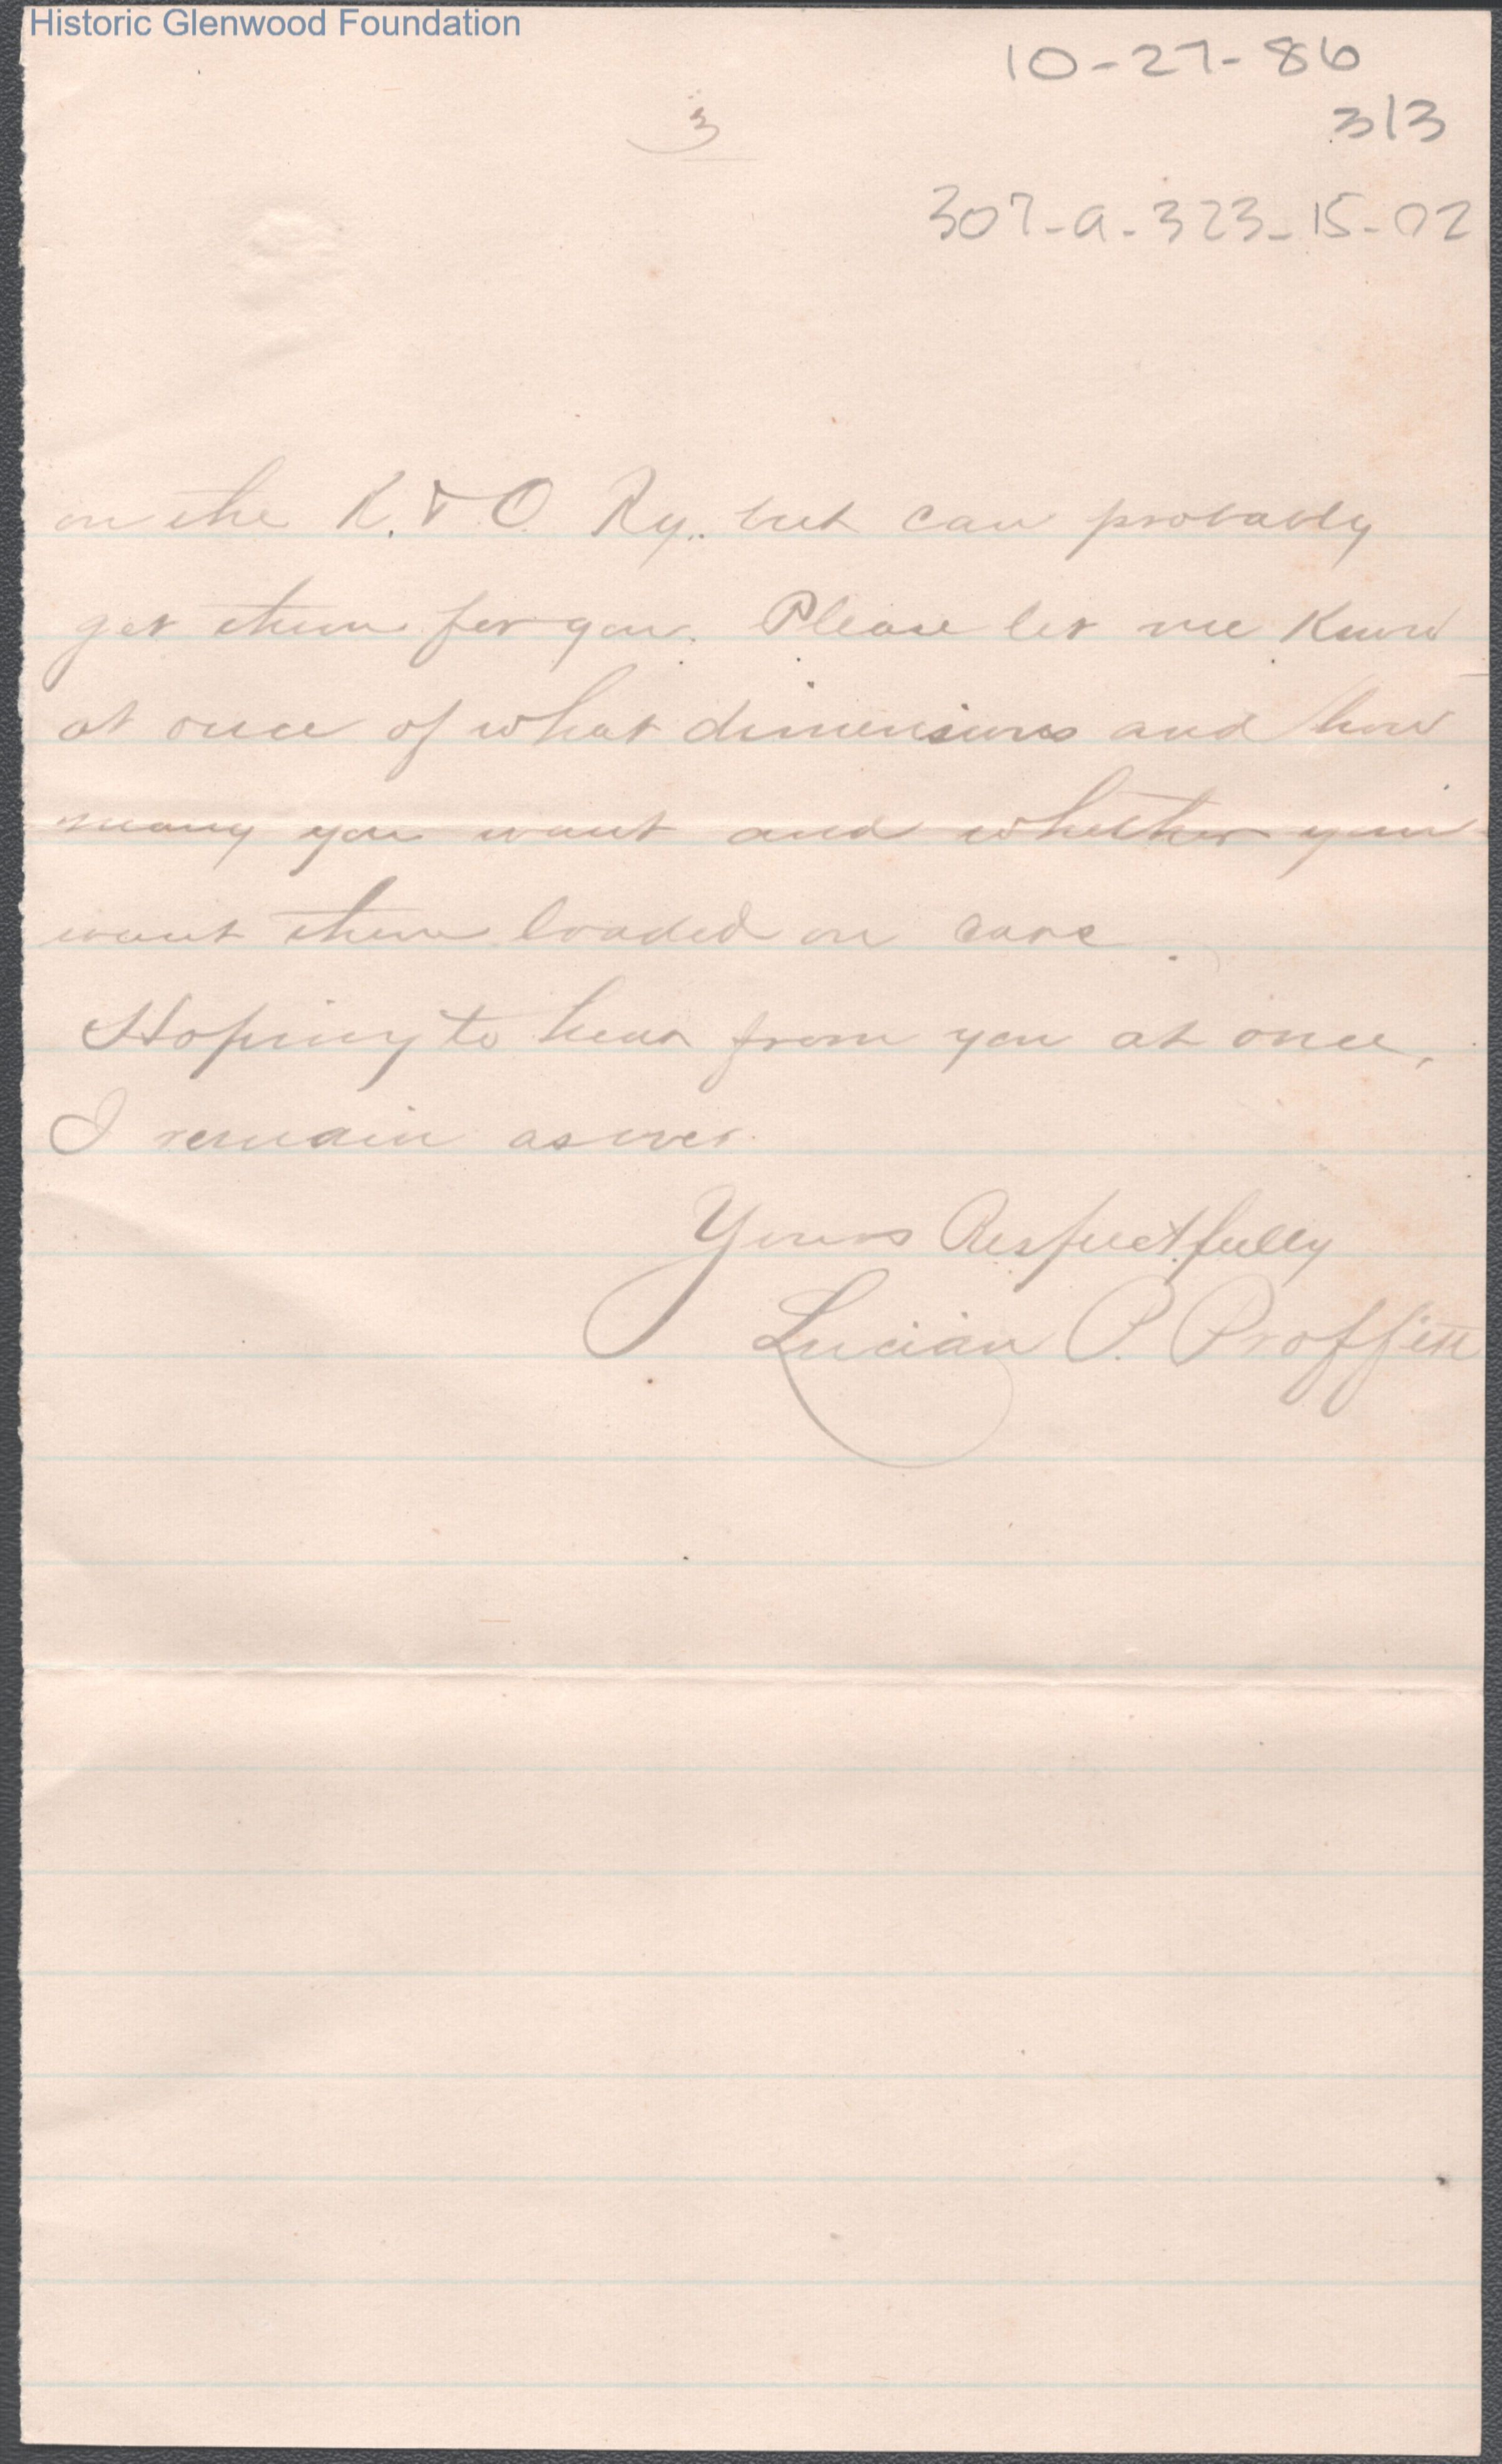 Historic Glenwood Foundation
10-27-86
3
313
307-a-323-15-02
on the K. & O. Ry., but can probably
get them for you. Please let me know
at once of what dimensions and how
many you want and whether you
want them loaded on cars.
Hoping to hear from you at once,
I remain as ever.
Yours Respectfully
Lucian P. Proffitt